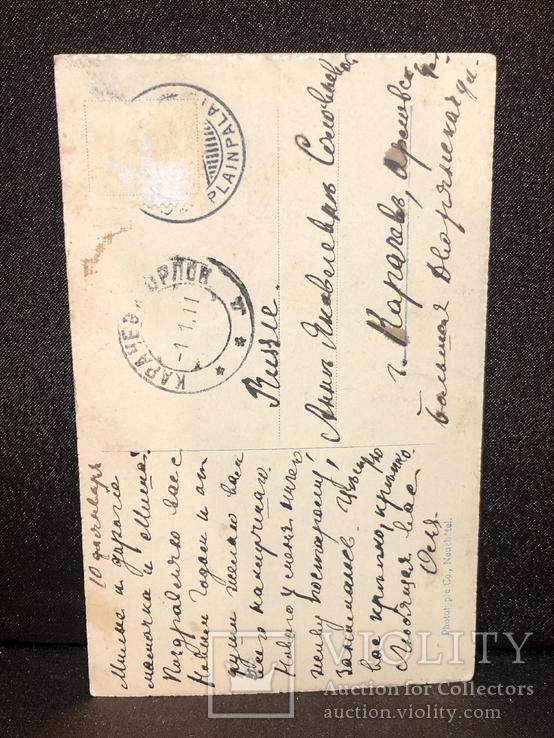 PLAINPALAI
КАРАЧЕВ ОРЛОВ
-1.1.11
Russie.
Аннѣ Яковлевнѣ
г. Карачевъ, Орловск
Большая Дворянская
10 
Милые и дорогіе
мамочка и Миша!
Поздравляю васъ съ
Новымъ Годомъ и отъ
души желаю вамъ
всего наилучшаго.
Новаго у меня ничего
живу постарому,
занимаюсь. Цѣлую
васъ крѣпко, крѣпко
Любящая васъ
Phototypie Co., Neuchâtel.
VIOLITY
Auction for Collectors
auction.violity.com